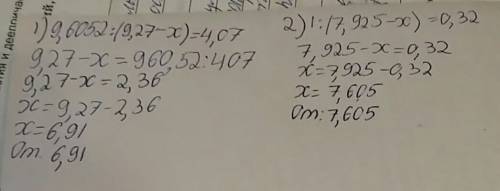 1) 9,6052:(9,27-x)=4,07
9,27-x=960,52:407
9,27-x=2,36
x=9,27-2,36
x=6,91
От: 6,91
2) 1:(7,925-x)=0,32
7,925-x=0,32
x=7,925-0,32
x=7,605
От: 7,605